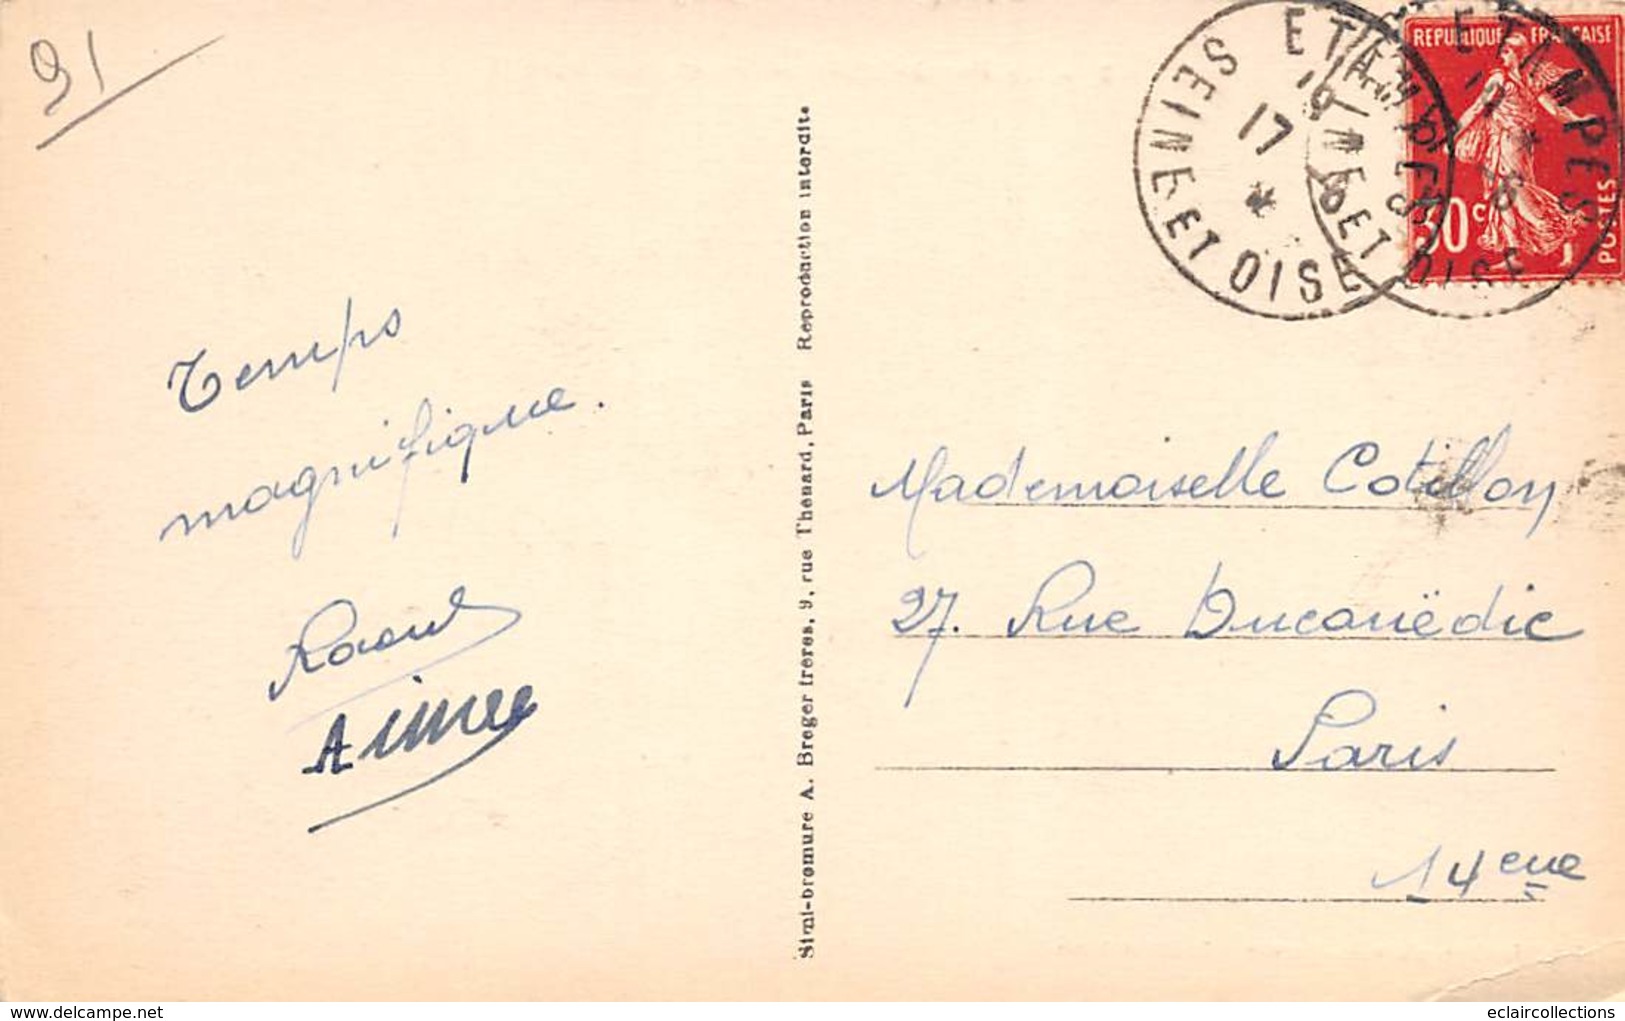 91
Temps
magnifique.
Raoul
Aimée
Simi-bromure A. Breger frères, 9, rue Thénard, Paris Reproduction interdite
ETAMPES
SEINE ET OISE
17
ETAMPES
SEINE ET OISE
REPUBLIQUE FRANÇAISE
30c
POSTES
Mademoiselle Cotillon
27. Rue Ducouëdic
Paris
14eme
www.delcampe.net
eclaircollections